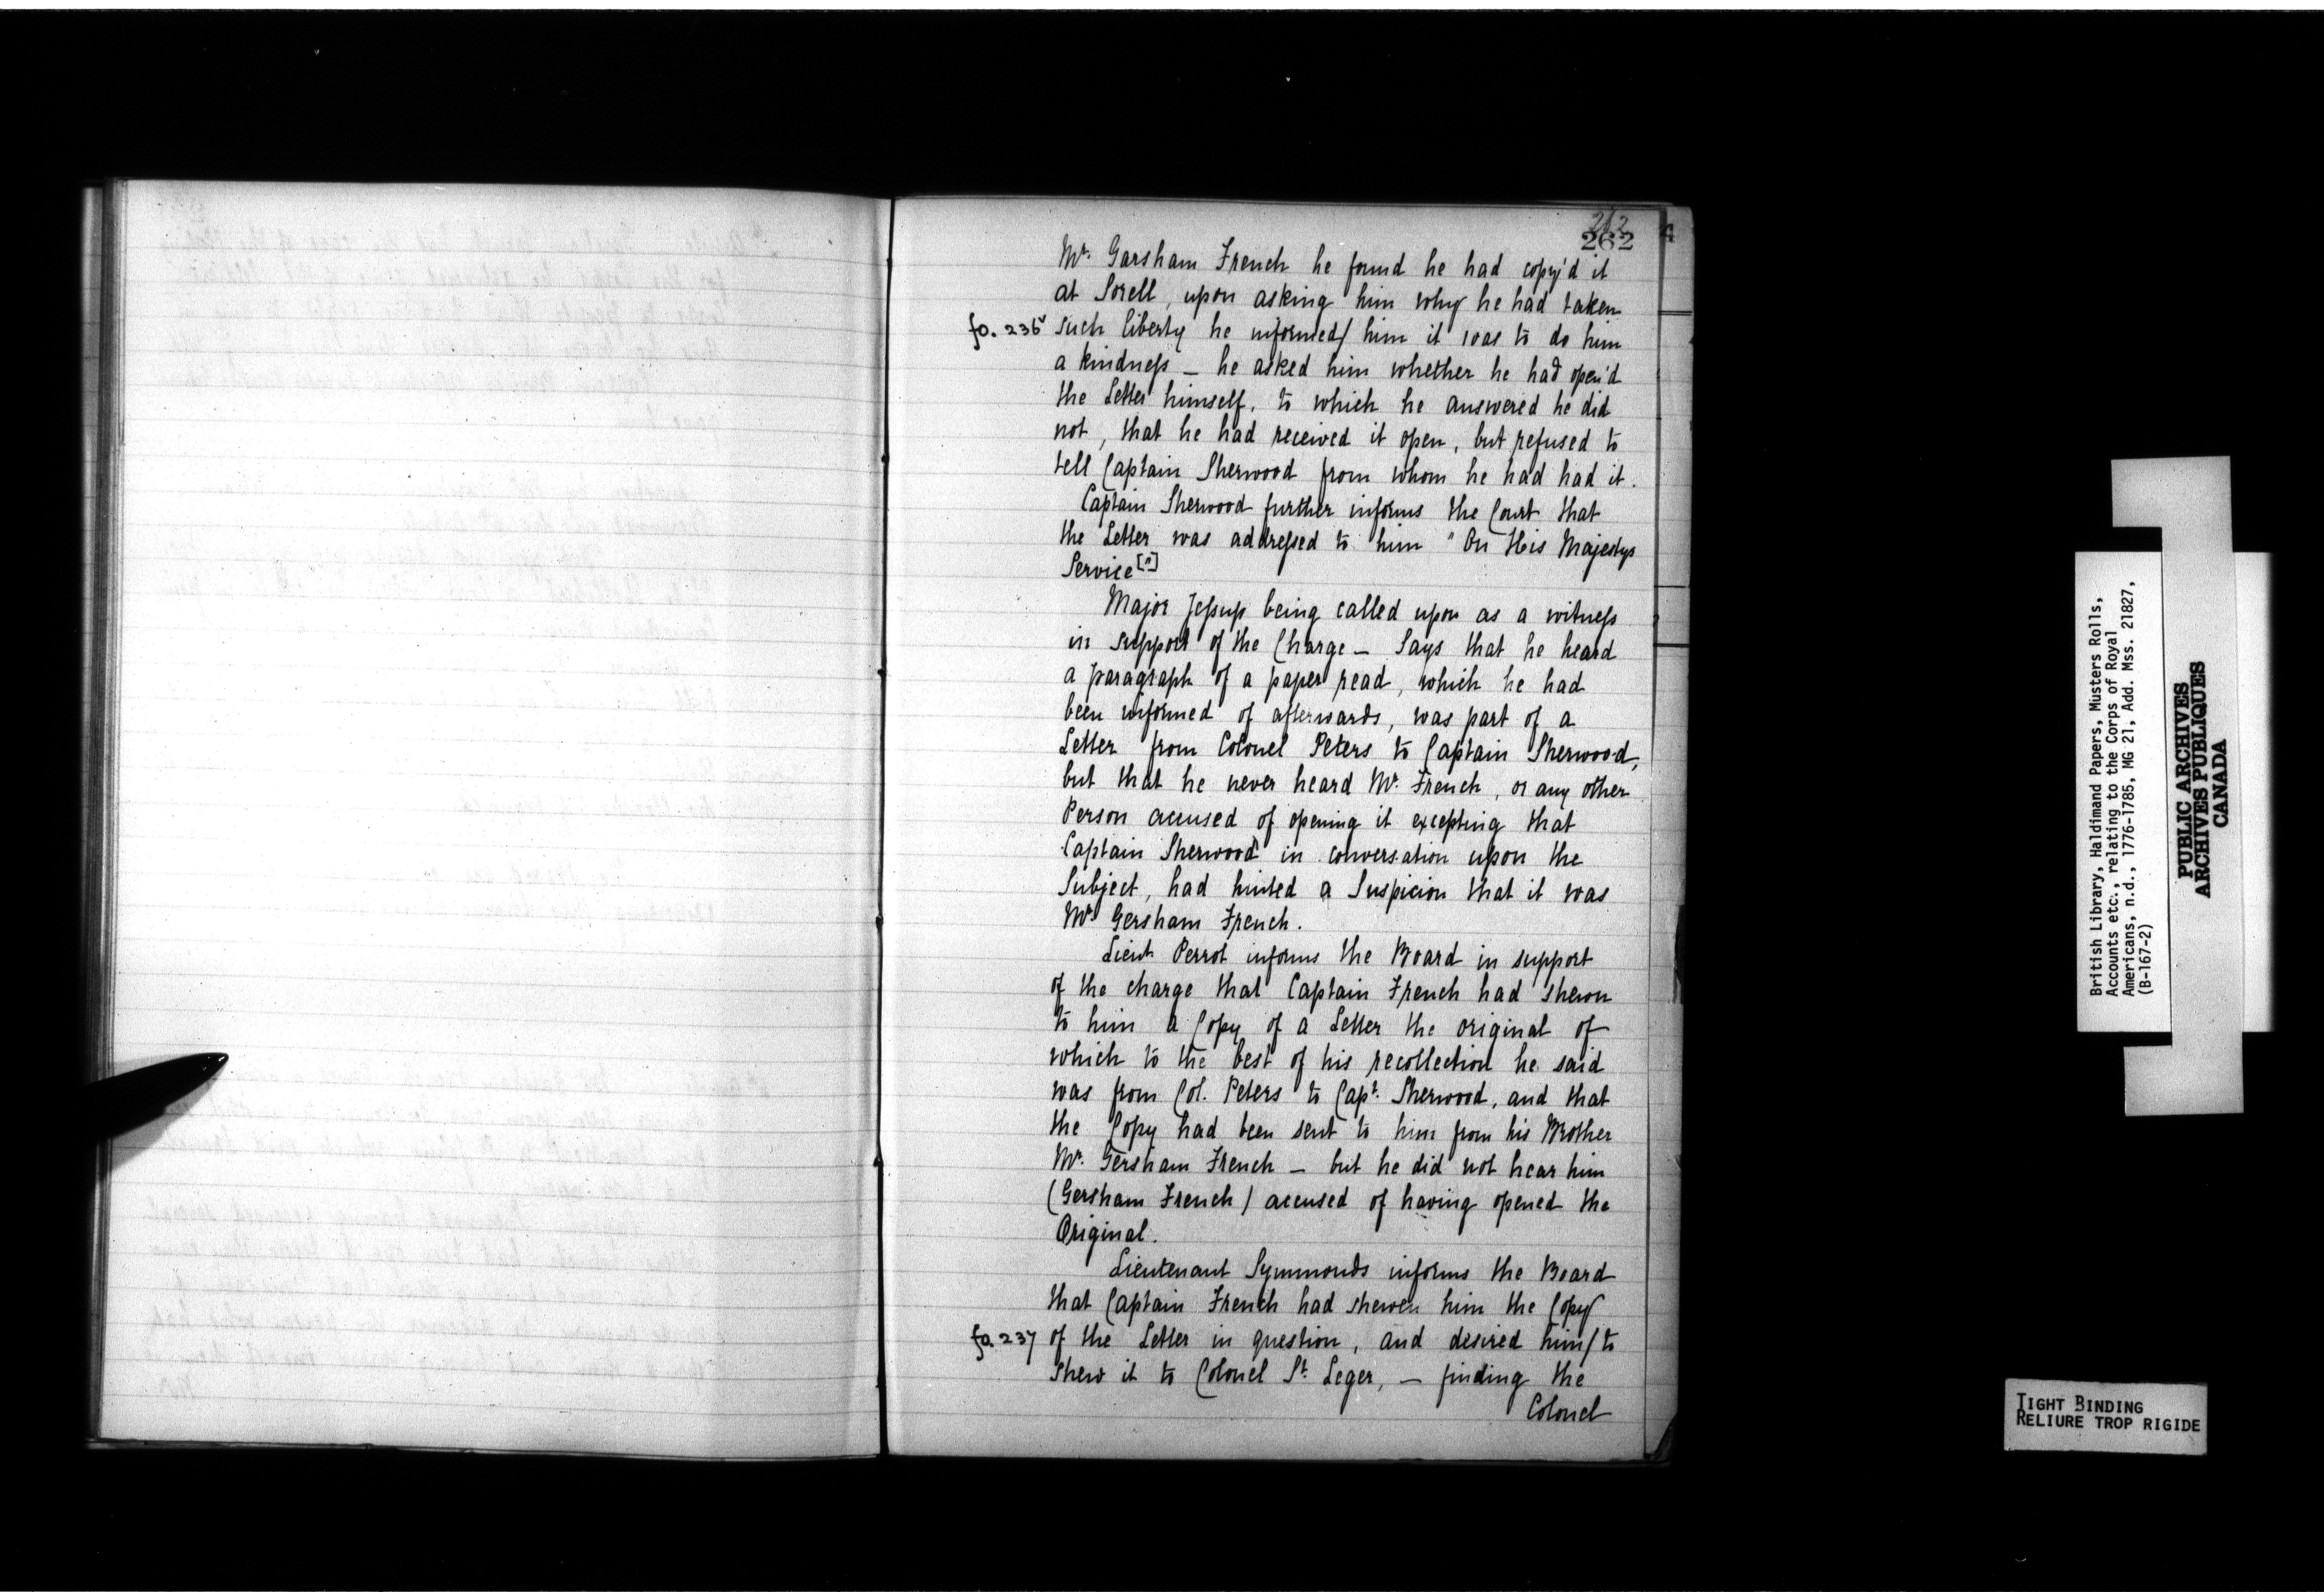 262
262
4
Mr. Garsham French he found he had copy'd it
at Sorell, upon asking him why he had taken
fo. 236v such liberty he informed/ him it was to do him
a kindness — he asked him whether he had open'd
the Letter himself, to which he answered he did
not, that he had received it open, but refused to
tell Captain Sherwood from whom he had had it.
Captain Sherwood further informs the Court that
the Letter was addressed to him " On His Majestys
Service["]
Major Jessup being called upon as a witness
in support of the Charge — Says that he heard
a paragraph of a paper read, which he had
been informed of afterwards, was part of a
Letter from Colonel Peters to Captain Sherwood,
but that he never heard Mr. French, or any other
Person accused of opening it excepting that
Captain Sherwood in conversation upon the
Subject, had hinted a Suspicion that it was
Mr. Gersham French.
Lieut Perrot informs the Board in support
of the charge that Captain French had shewn
to him a Copy of a Letter the original of
which to the best of his recollection he said
was from Col. Peters to Capt. Sherwood, and that
the Copy had been sent to him from his Brother
Mr. Gersham French — but he did not hear him
(Gersham French) accused of having opened the
Original.
Lieutenant Symmonds informs the Board
that Captain French had shewen him the Copy
fo. 237 of the Letter in question, and desired him/ to
shew it to Colonel St. Leger, — finding the
Colonel
British Library, Haldimand Papers, Musters Rolls,
Accounts etc., relating to the Corps of Royal
Americans, n.d., 1776-1785, MG 21, Add. Mss. 21827,
(B-167-2)
PUBLIC ARCHIVES
ARCHIVES PUBLIQUES
CANADA
TIGHT BINDING
RELIURE TROP RIGIDE